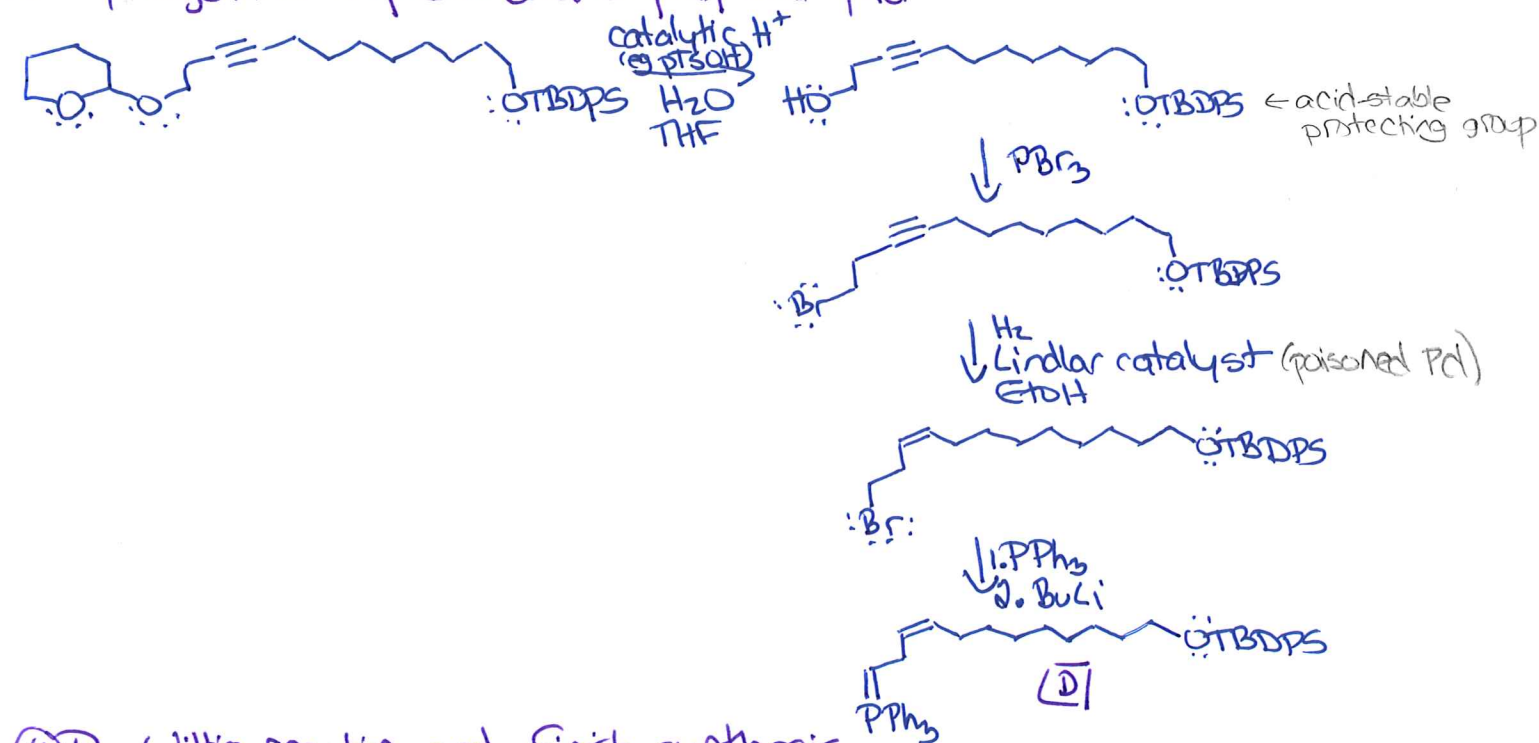 catalytic H+
(eg pTsOH)
:OTBDPS H2O HO :OTBDPS ← acid-stable
THF protecting group
O O
↓ PBr3
:OTBDPS
:Br
↓ H2
Lindlar catalyst (poisoned Pd)
EtOH
OTBDPS
:Br:
↓ 1. PPh3
2. BuLi
OTBDPS
D
PPh3